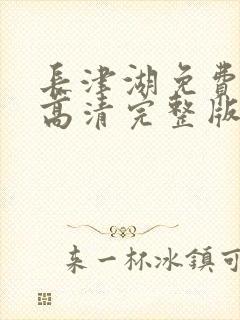 長津湖免費
高清完整版
来一杯冰鎮可